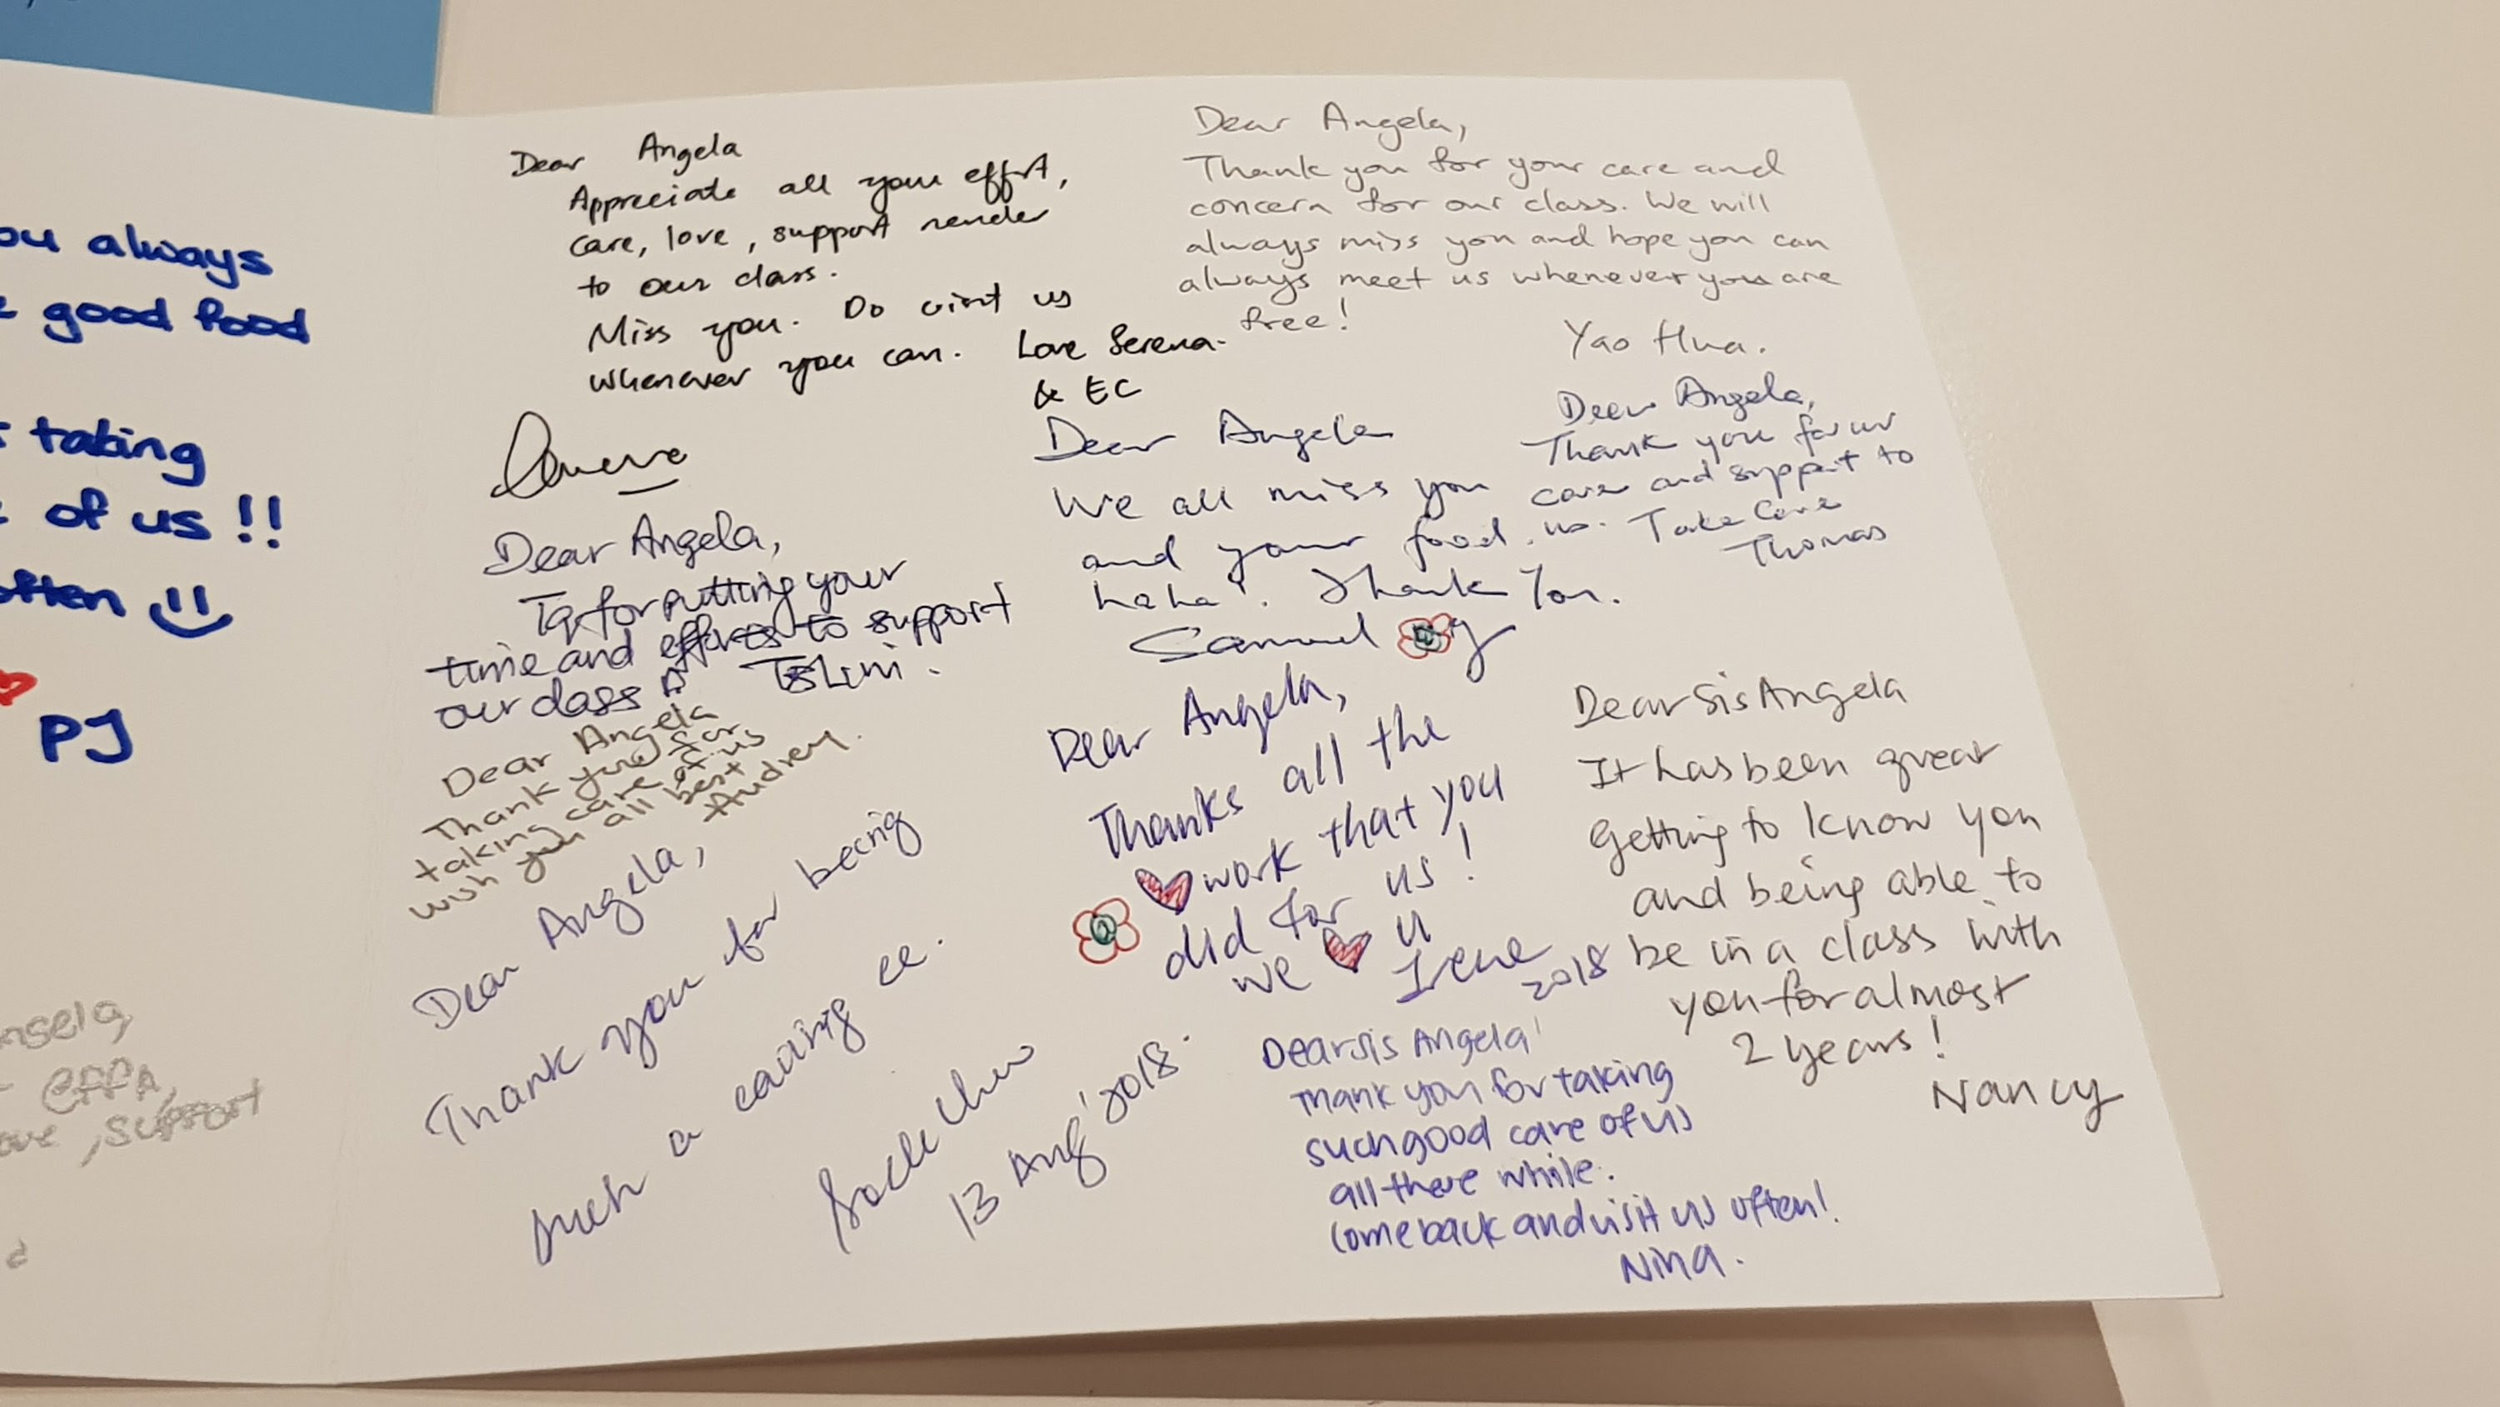 ou always
good food
taking
of us !!
often
PJ
ngela
effa,
ove, support
Dear Angela
Appreciate all your effort,
care, love, support render
to our class.
Miss you. Do visit us
whenever you can. Love Serena.
& EC
Dear Angela,
Thank you for your care and
concern for our class. We will
always miss you and hope you can
always meet us whenever you are
free!
Yao Hua.
Dear Angela,
Thank you for ur
care and support to
us. Take Care
Thomas
Dear Angela
We all miss you
and your food.
haha! Thank You.
Samuel
Dear Angela,
Tq for putting your
time and efforts to support
our class
Dear Angela
Thank you for
taking care of us
wish you all best
Audrey.
Dear Angela,
Thank you for being
such a caring cc.
13 Aug'2018.
Dear Angela,
Thanks all the
work that you
did for us!
we u
Irene
2018
Dear Sis Angela
It has been great
getting to know you
and being able to
be in a class with
you for almost
2 years!
Nancy
Dear sis Angela
Thank you for taking
such good care of us
all there while.
Come back and visit us often!
Nina.